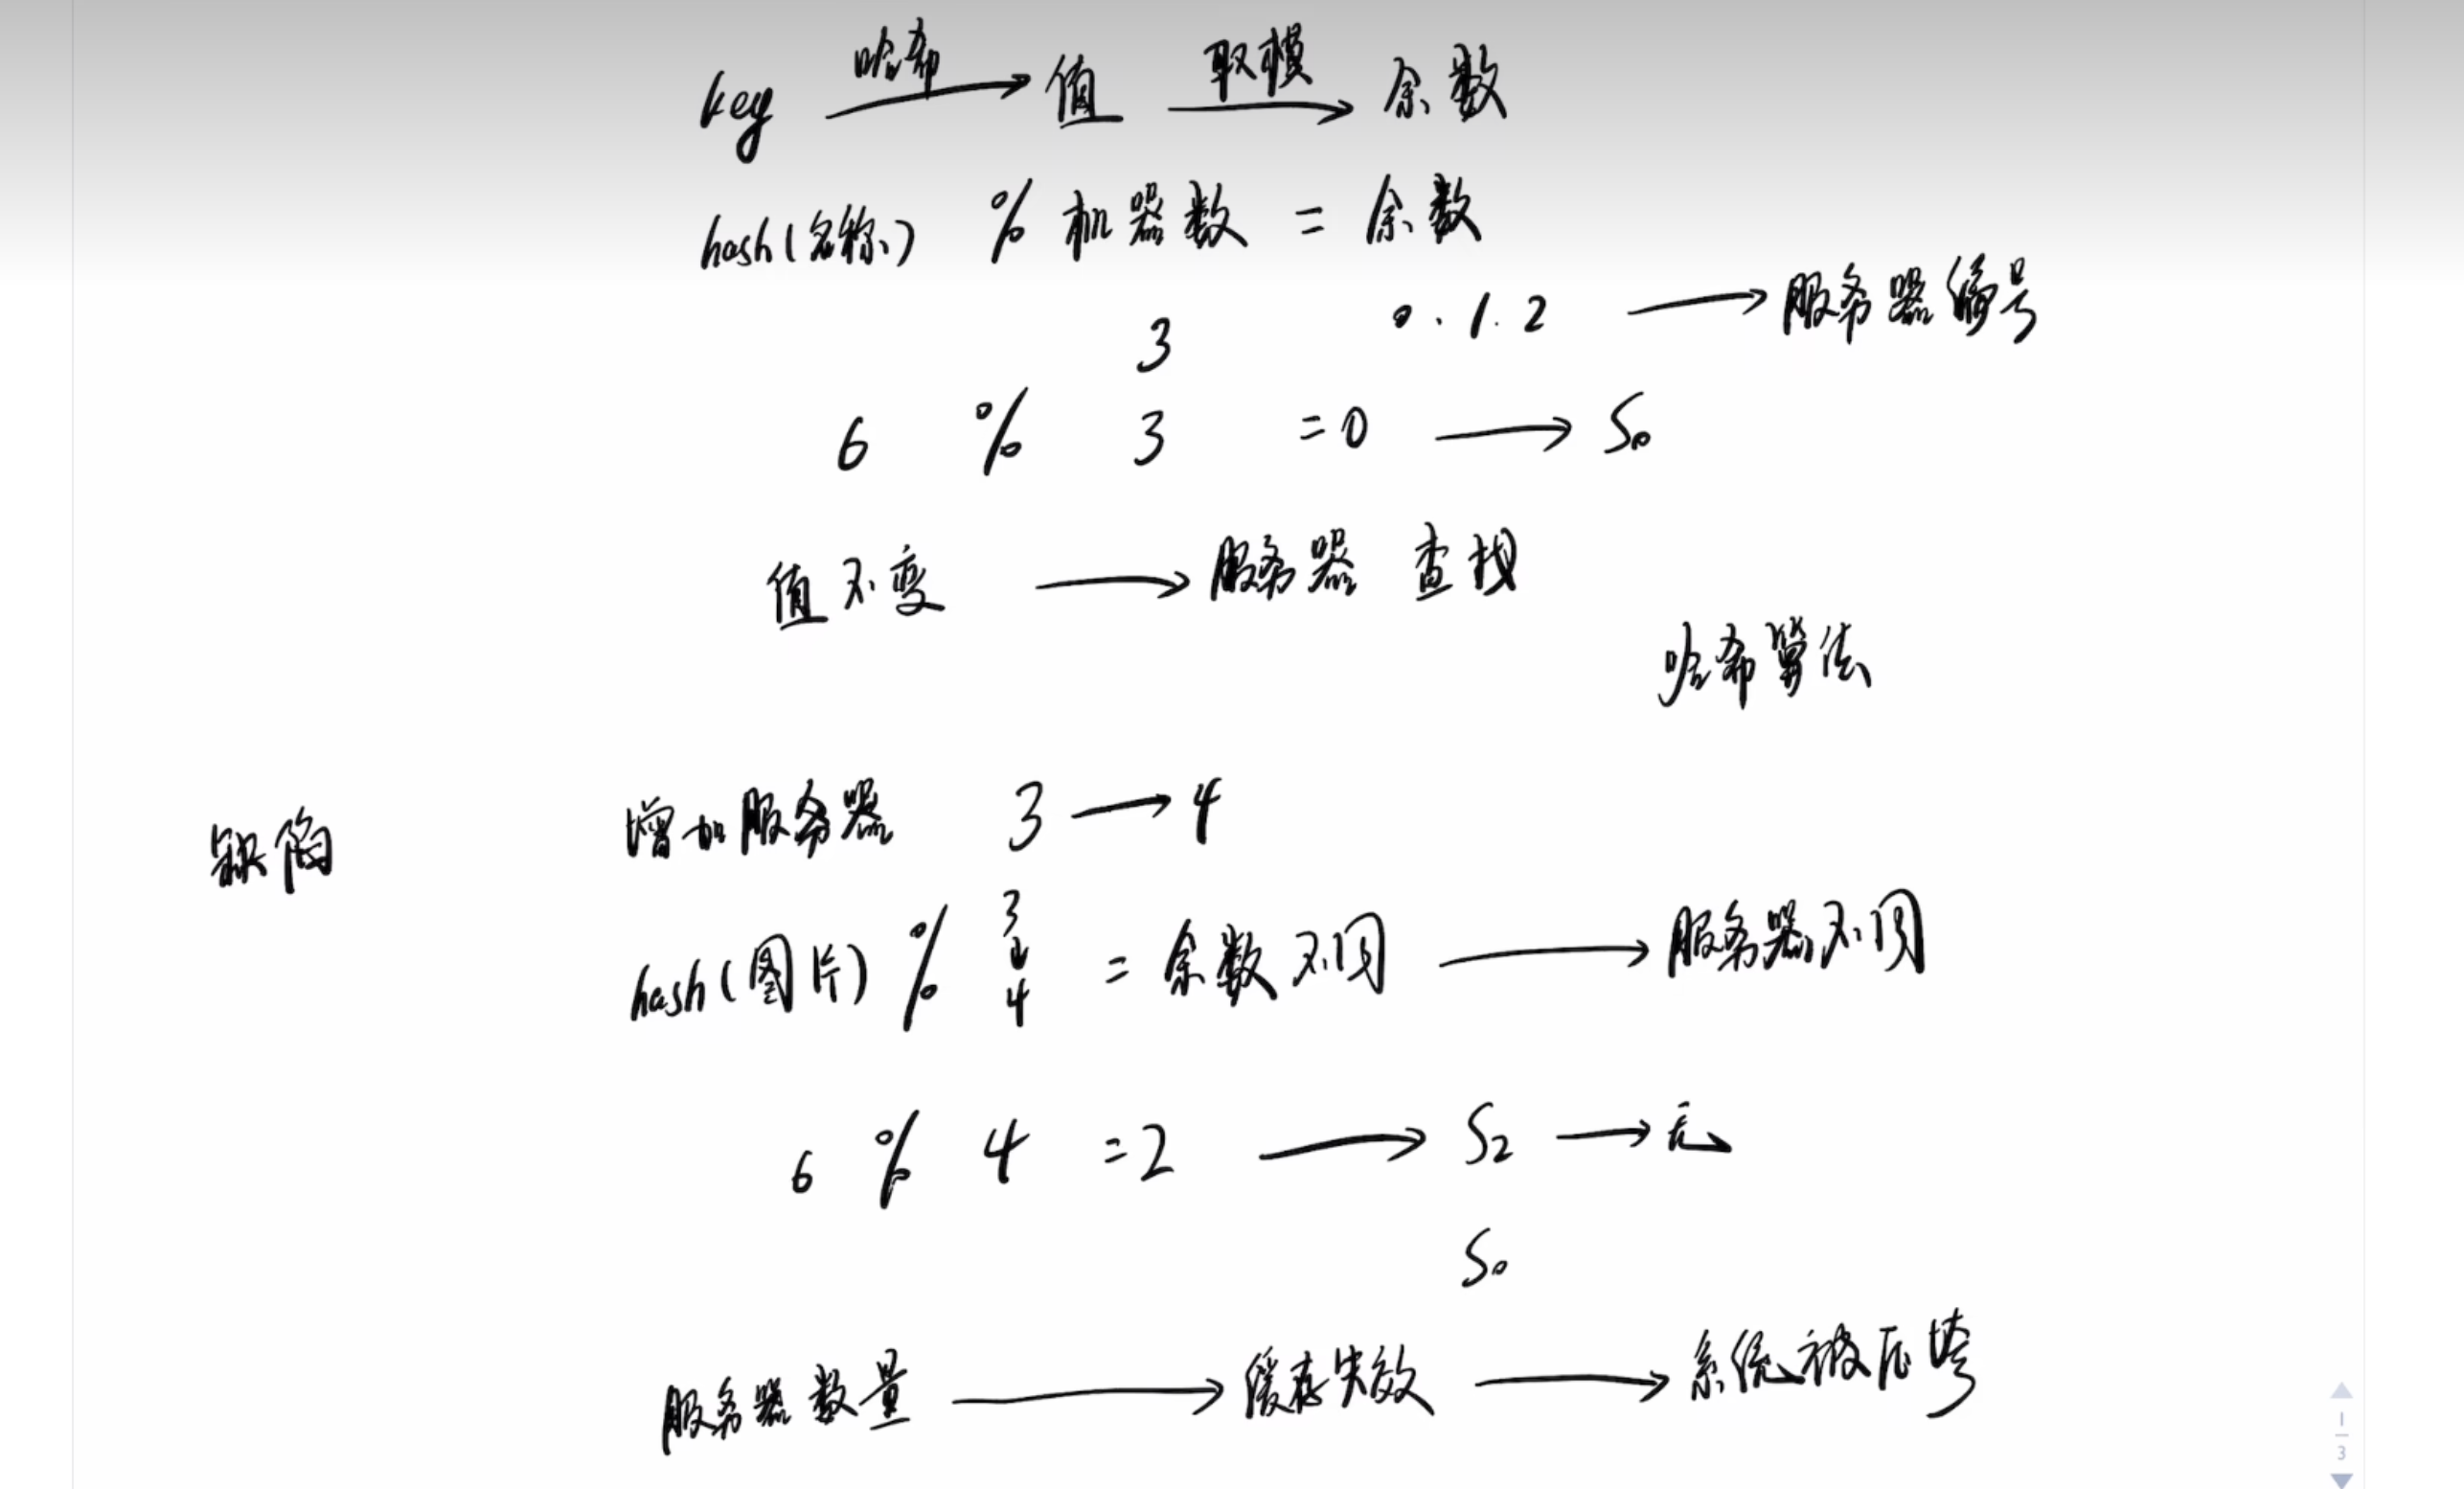 key 哈希→ 值 取模→ 余数
hash(名称) % 机器数 = 余数
3 0.1.2 → 服务器编号
6 % 3 =0 → S0
值不变 → 服务器 查找
哈希算法
缺陷 增加服务器 3→4
hash(图片) % 3↓4 = 余数不同 → 服务器不同
6 % 4 =2 → S2 → 无
S0
服务器数量 → 缓存失效 → 系统被压垮
1
3